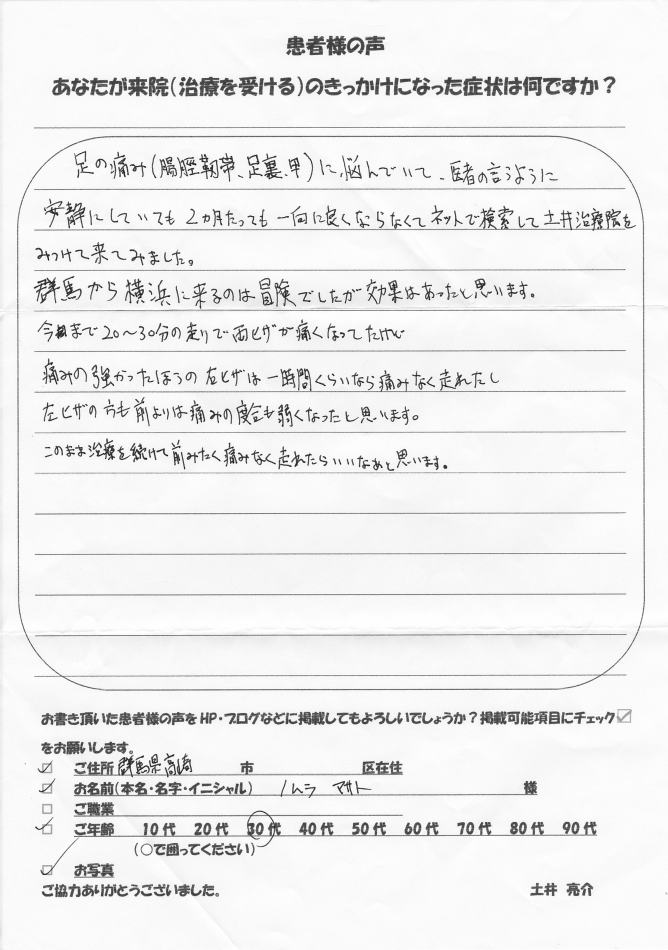 患者様の声
あなたが来院（治療を受ける）のきっかけになった症状は何ですか？
足の痛み（腸脛靭帯、足裏、甲）に悩んでいて、医者の言うように
安静にしていても2カ月たっても一向に良くならなくてネットで検索して土井治療院を
みつけて来てみました。
群馬から横浜に来るのは冒険でしたが効果はあったと思います。
今まで20〜30分の走りで両ヒザが痛くなってたけど
痛みの強かったほうの左ヒザは一時間くらいなら痛みなく走れたし
左ヒザの方も前よりは痛みの度合も弱くなったと思います。
このまま治療を続けて前みたく痛みなく走れたらいいなぁと思います。
お書き頂いた患者様の声をHP・ブログなどに掲載してもよろしいでしょうか？掲載可能項目にチェック☑
をお願いします。
☑ ご住所 群馬県高崎 市 区在住
☑ お名前（本名・名字・イニシャル） ノムラ マサト 様
□ ご職業
☑ ご年齢 10代 20代 30代 40代 50代 60代 70代 80代 90代
（○で囲ってください）
☑ お写真
ご協力ありがとうございました。 土井 亮介